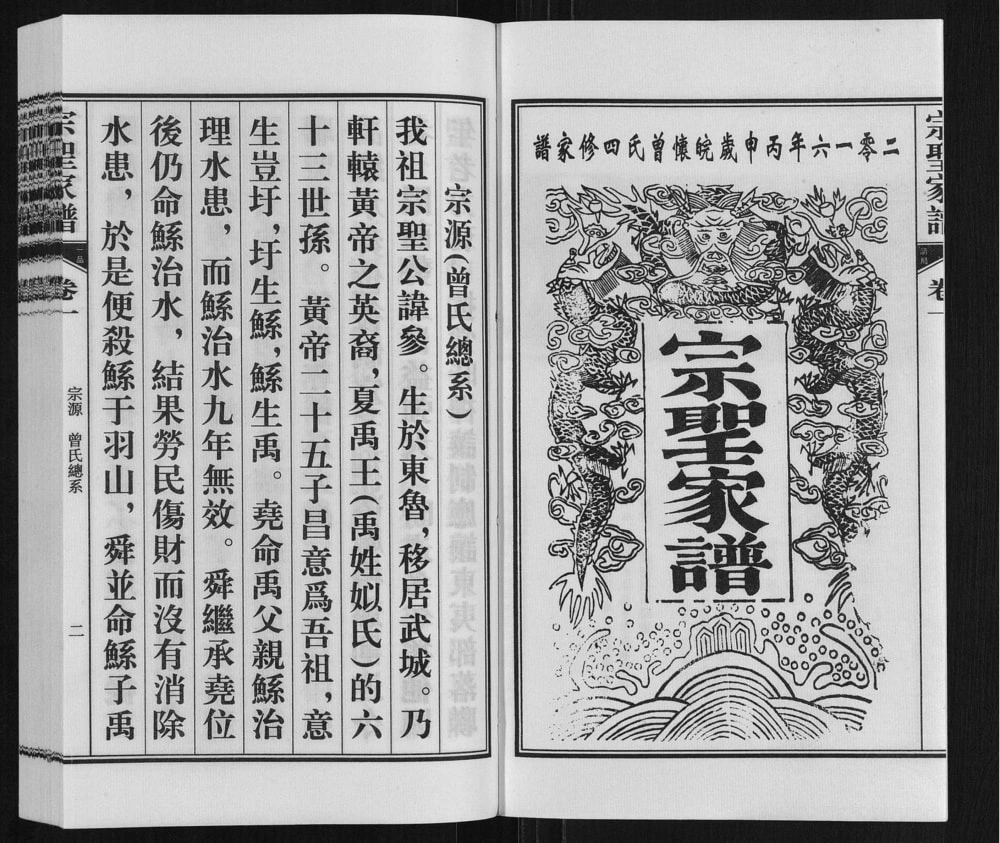 宗聖家譜
卷一
二零一六年丙申歲皖懷曾氏四修家譜
宗聖家譜
宗源(曾氏總系)
我祖宗聖公諱參。生於東魯,移居武城。乃
軒轅黃帝之英裔,夏禹王(禹姓姒氏)的六
十三世孫。黃帝二十五子昌意爲吾祖,意
生豈圩,圩生鯀,鯀生禹。堯命禹父親鯀治
理水患,而鯀治水九年無效。舜繼承堯位
後仍命鯀治水,結果勞民傷財而沒有消除
水患,於是便殺鯀于羽山,舜並命鯀子禹
宗聖家譜
卷一
宗源 曾氏總系
二